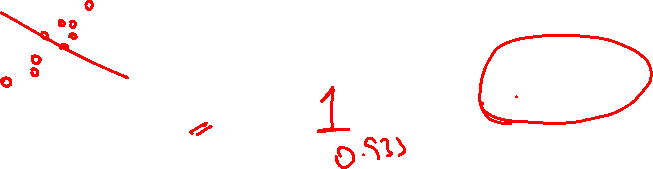 = 1
0.533